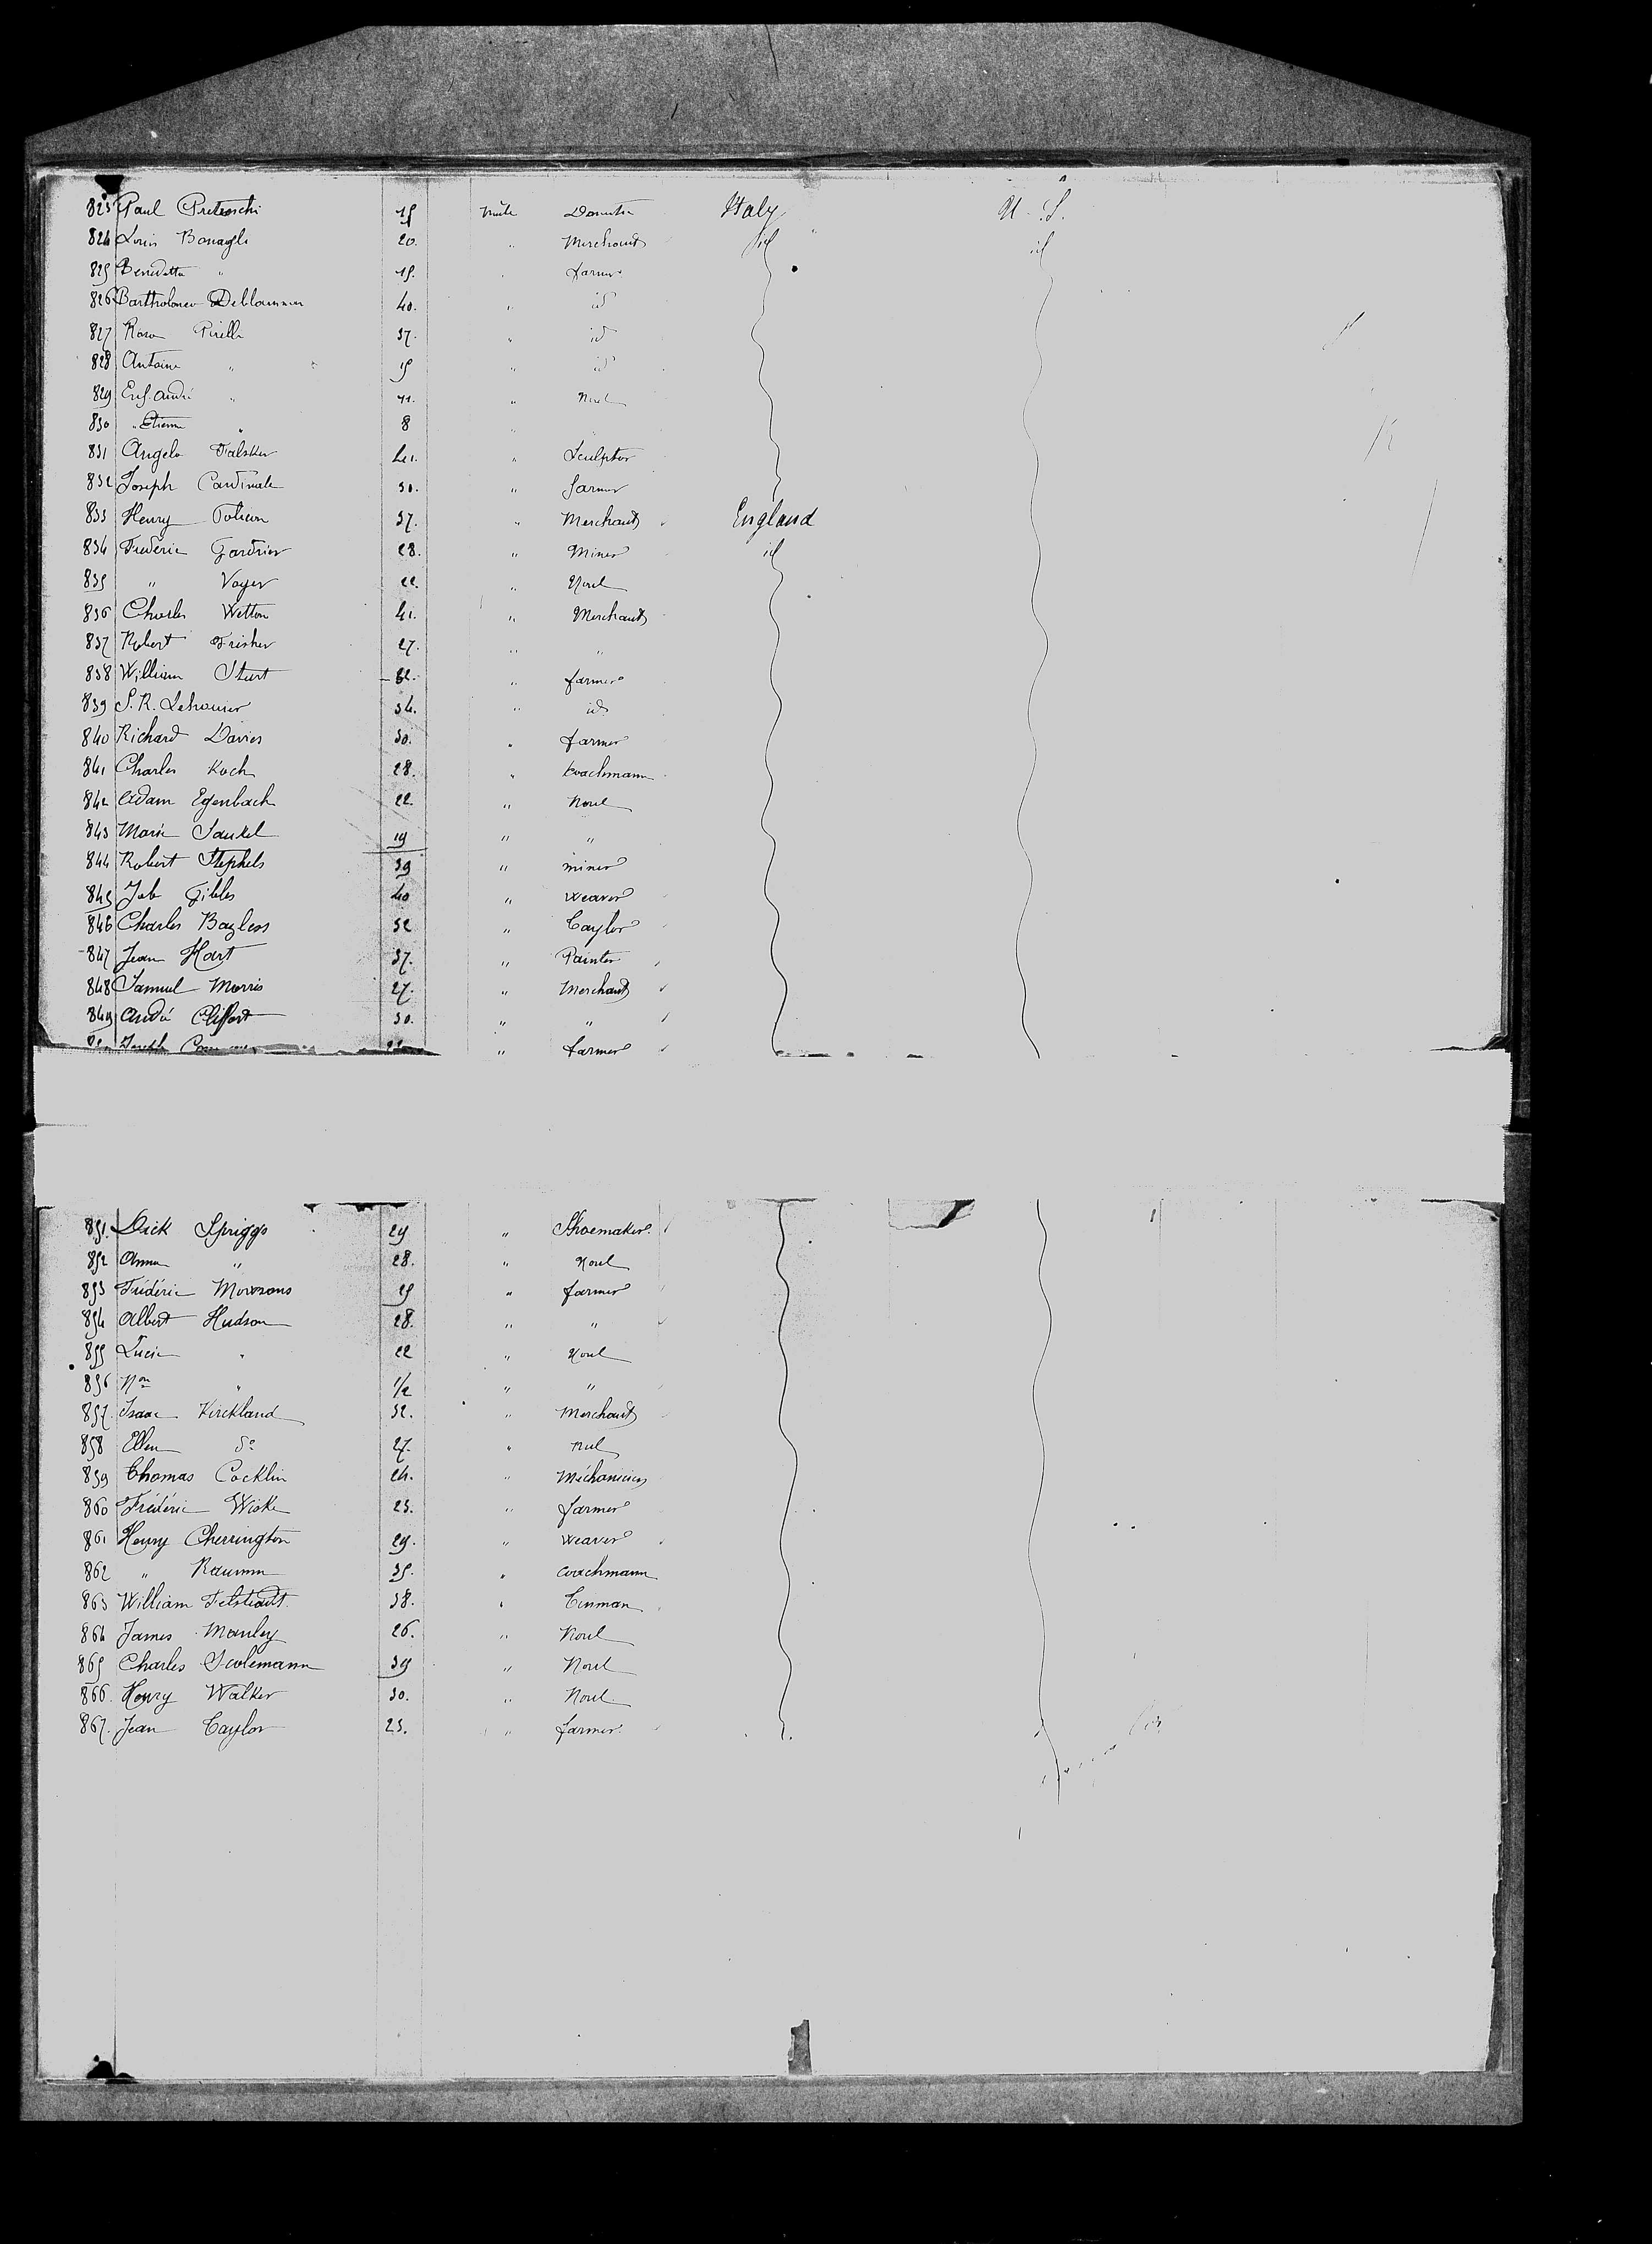 823 Paul Pretroschi 15 male Domestic Italy U. S.
824 Louis Bonagli 20. " Merchant id id
825 Benedetta " 15. " farmer
826 Bartholomeo 40. " id
827 Rosa Pirelli 37. " id
828 Antoine " 15 " id
829 Enf. André " 11. " Noul
830 " Etienne " 8 "
831 Angelo 41. " Sculptor
832 Joseph Cardinale 30. " farmer
833 Henry 37. " Merchant England
834 Frederic Gardner 28. " Miner id
835 " Voyer 22. " Noul
836 Charles Wetton 41. " Merchant
837 Robert Frisher 27. " "
838 William Sturt 32. " farmer
839 S. R. 34. " id
840 Richard Davies 30. " farmer
841 Charles Koch 28. " Coachmann
842 Adam Egenbach 22 " Noul
843 Marie Sankel 19 " "
844 Robert Stephels 39 " miner
845 Job Gibbes 40 " Weaver
846 Charles Bayless 32 " Taylor
847 Jean Hart 37. " Painter
848 Samuel Morris 27. " Merchant
849 André Cliffort 30. " "
Joseph " farmer
851. Dick Spriggs 29 " Shoemaker.
852 Anna " 28. " Noul
853 Frédéric 25 " farmer
854 Albert Hudson 28. " "
855 Lucie " 22 " Noul
856 Non " 1/2 " "
857. Isaac Kirckland 32. " Merchant
858 Ellen do 27. " Nul
859 Thomas Cocklin 24. " Méchanicien
860 Frédéric Wiske 23. " farmer
861 Henry Cherrington 29. " Weaver
862 " Raumm 35. " Coachmann
863 William 38. " Tinman
864 James Manley 26. " Noul
865 Charles Scolemann 39 " Noul
866. Henry Walker 30. " Noul.
867. Jean Taylor 23. " farmer.